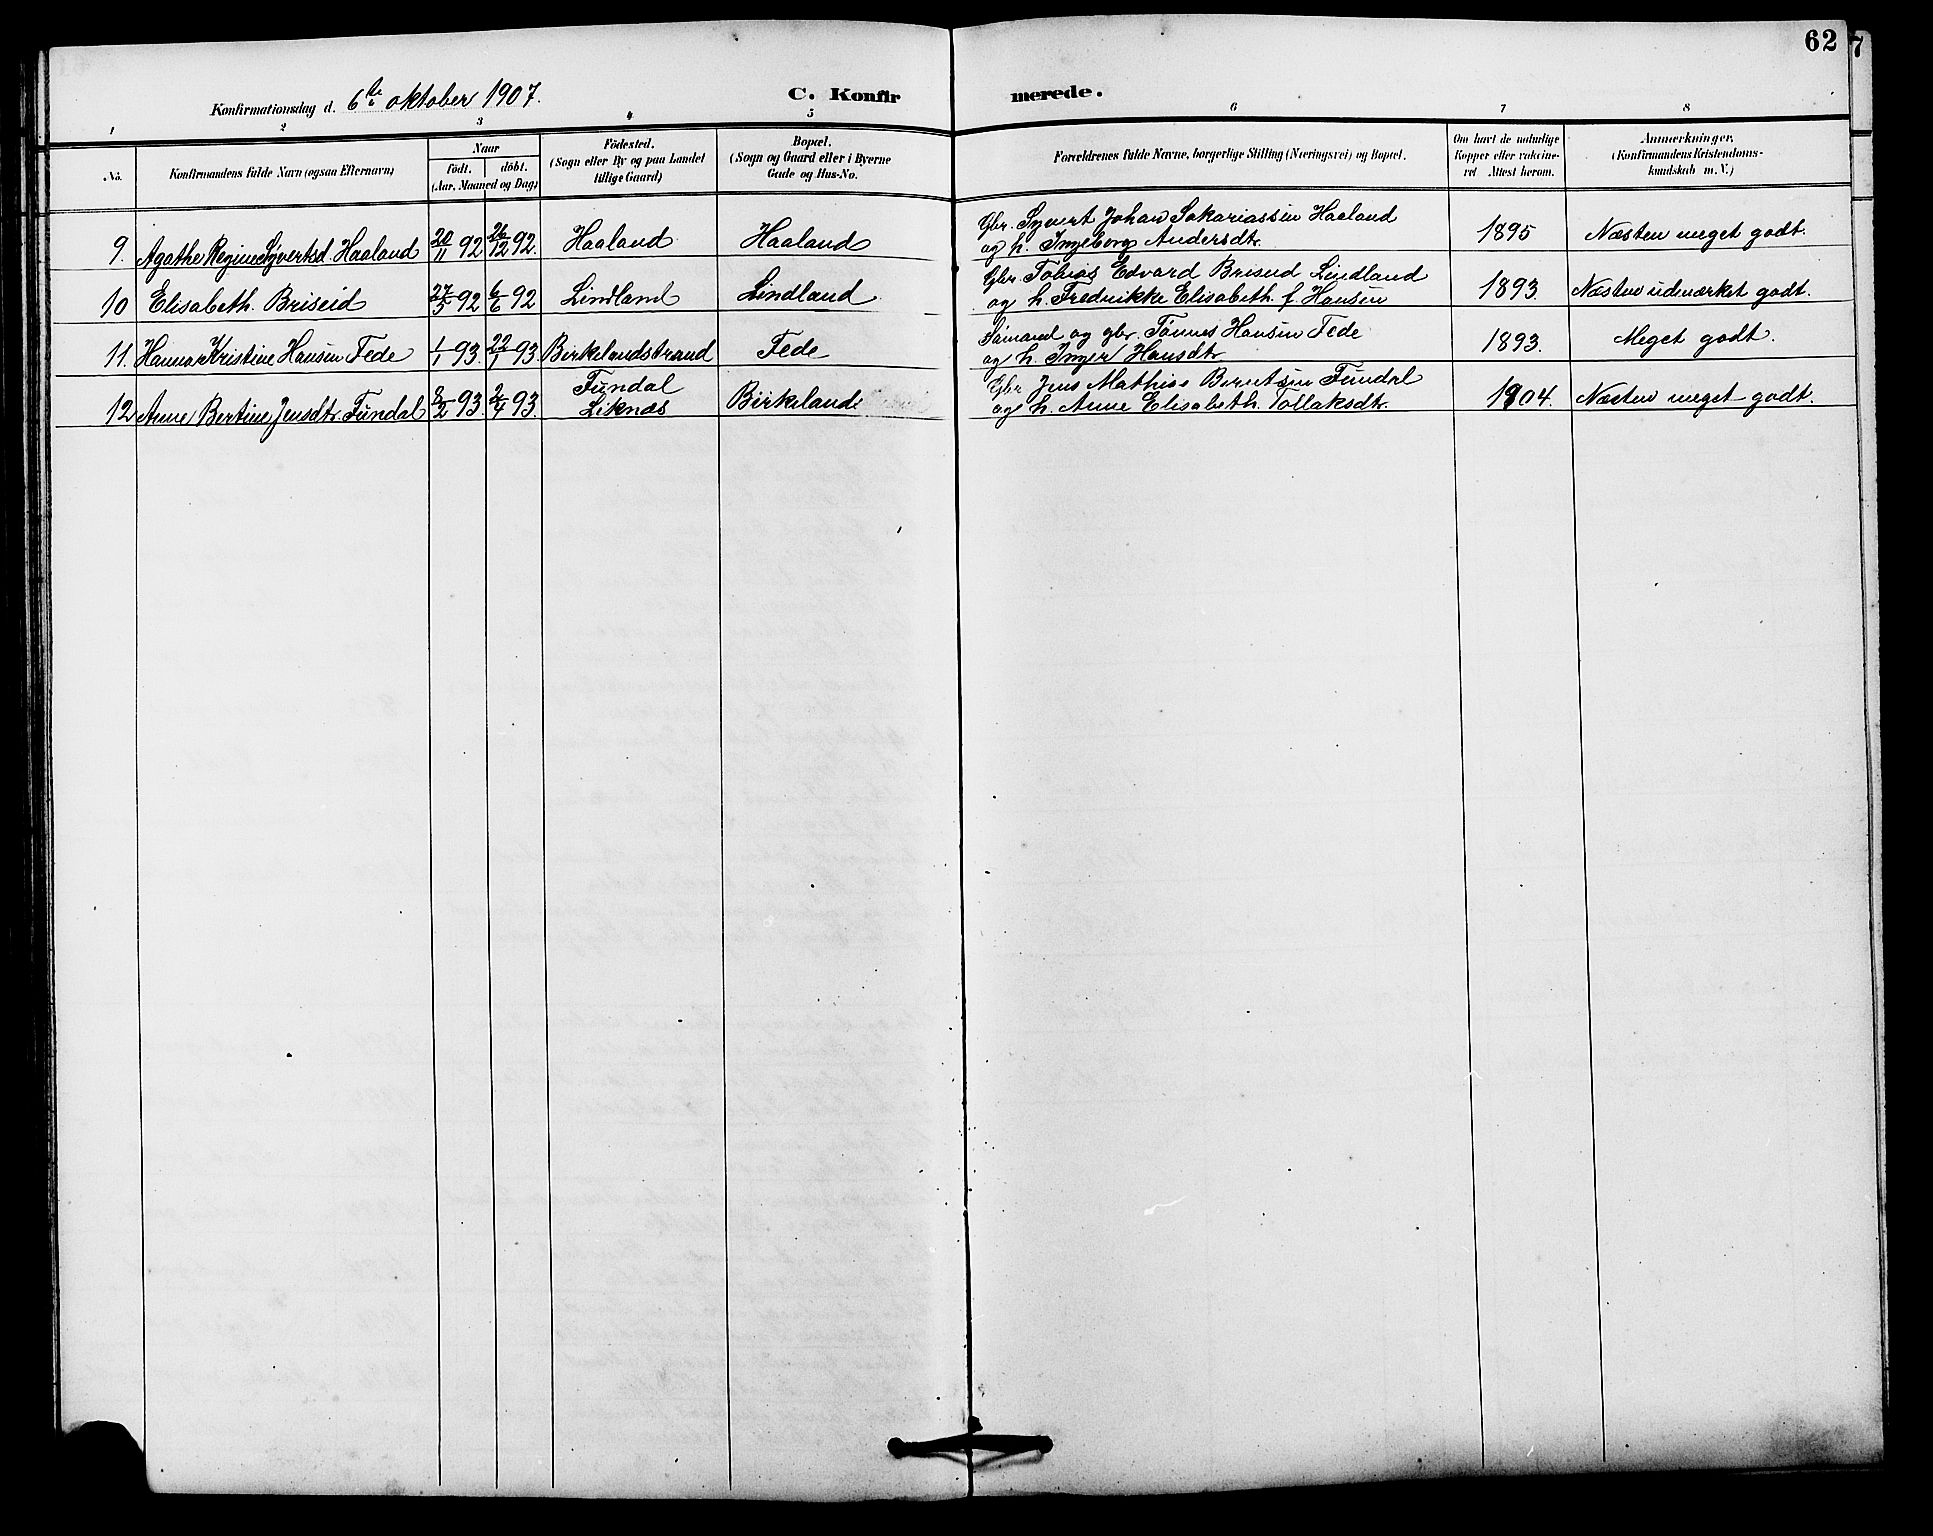 62
7
Konfirmationsdag d. 6te oktober 1907.
C. Konfirmerede.
1 2 3 4 5 6 7 8
No.
Konfirmandens fulde Navn (ogsaa Efternavn)
Naar
födt. döbt.
(Aar, Maaned og Dag)
Födested.
(Sogn eller By og paa Landet
tillige Gaard)
Bopæl.
(Sogn og Gaard eller i Byerne
Gade og Hus-No.
Forældrenes fulde Navne, borgerlige Stilling (Næringsvei) og Bopæl.
Om havt de naturlige
Kopper eller vaccine-
ret Attest herom.
Anmærkninger,
(Konfirmandens Kristendoms-
kundskab m. V.)
9. Agathe Regine Syvertsd. Haaland 20/11 92 26/12 92. Haaland Haaland Gbr. Syvert Johan Sakariassen Haaland
og h. Ingeborg Andersdtr. 1895 Næsten meget godt.
10 Elisabeth Briseid 27/5 92 6/6 92 Lindland Lindland. Gbr. Tobias Edvard Briseid Lindland
og h. Fredrikke Elisabeth f. Hansen 1893. Næsten udmærket godt.
11. Hanna Kristine Hansen Fede 1/1 93 22/1 93. Birkelandstrand Fede Sömand og gbr. Tönnes Hansen Fede
og h. Inger Hansdtr 1893. Meget godt.
12 Anne Bertine Jensdtr. Fundal 8/2 93. 2/4 93. Fundal
Liknæs Birkeland Gbr Jens Mathias Berntsen Fundal
og h. Anne Elisabeth Tollaksdtr. 1904. Næsten meget godt.